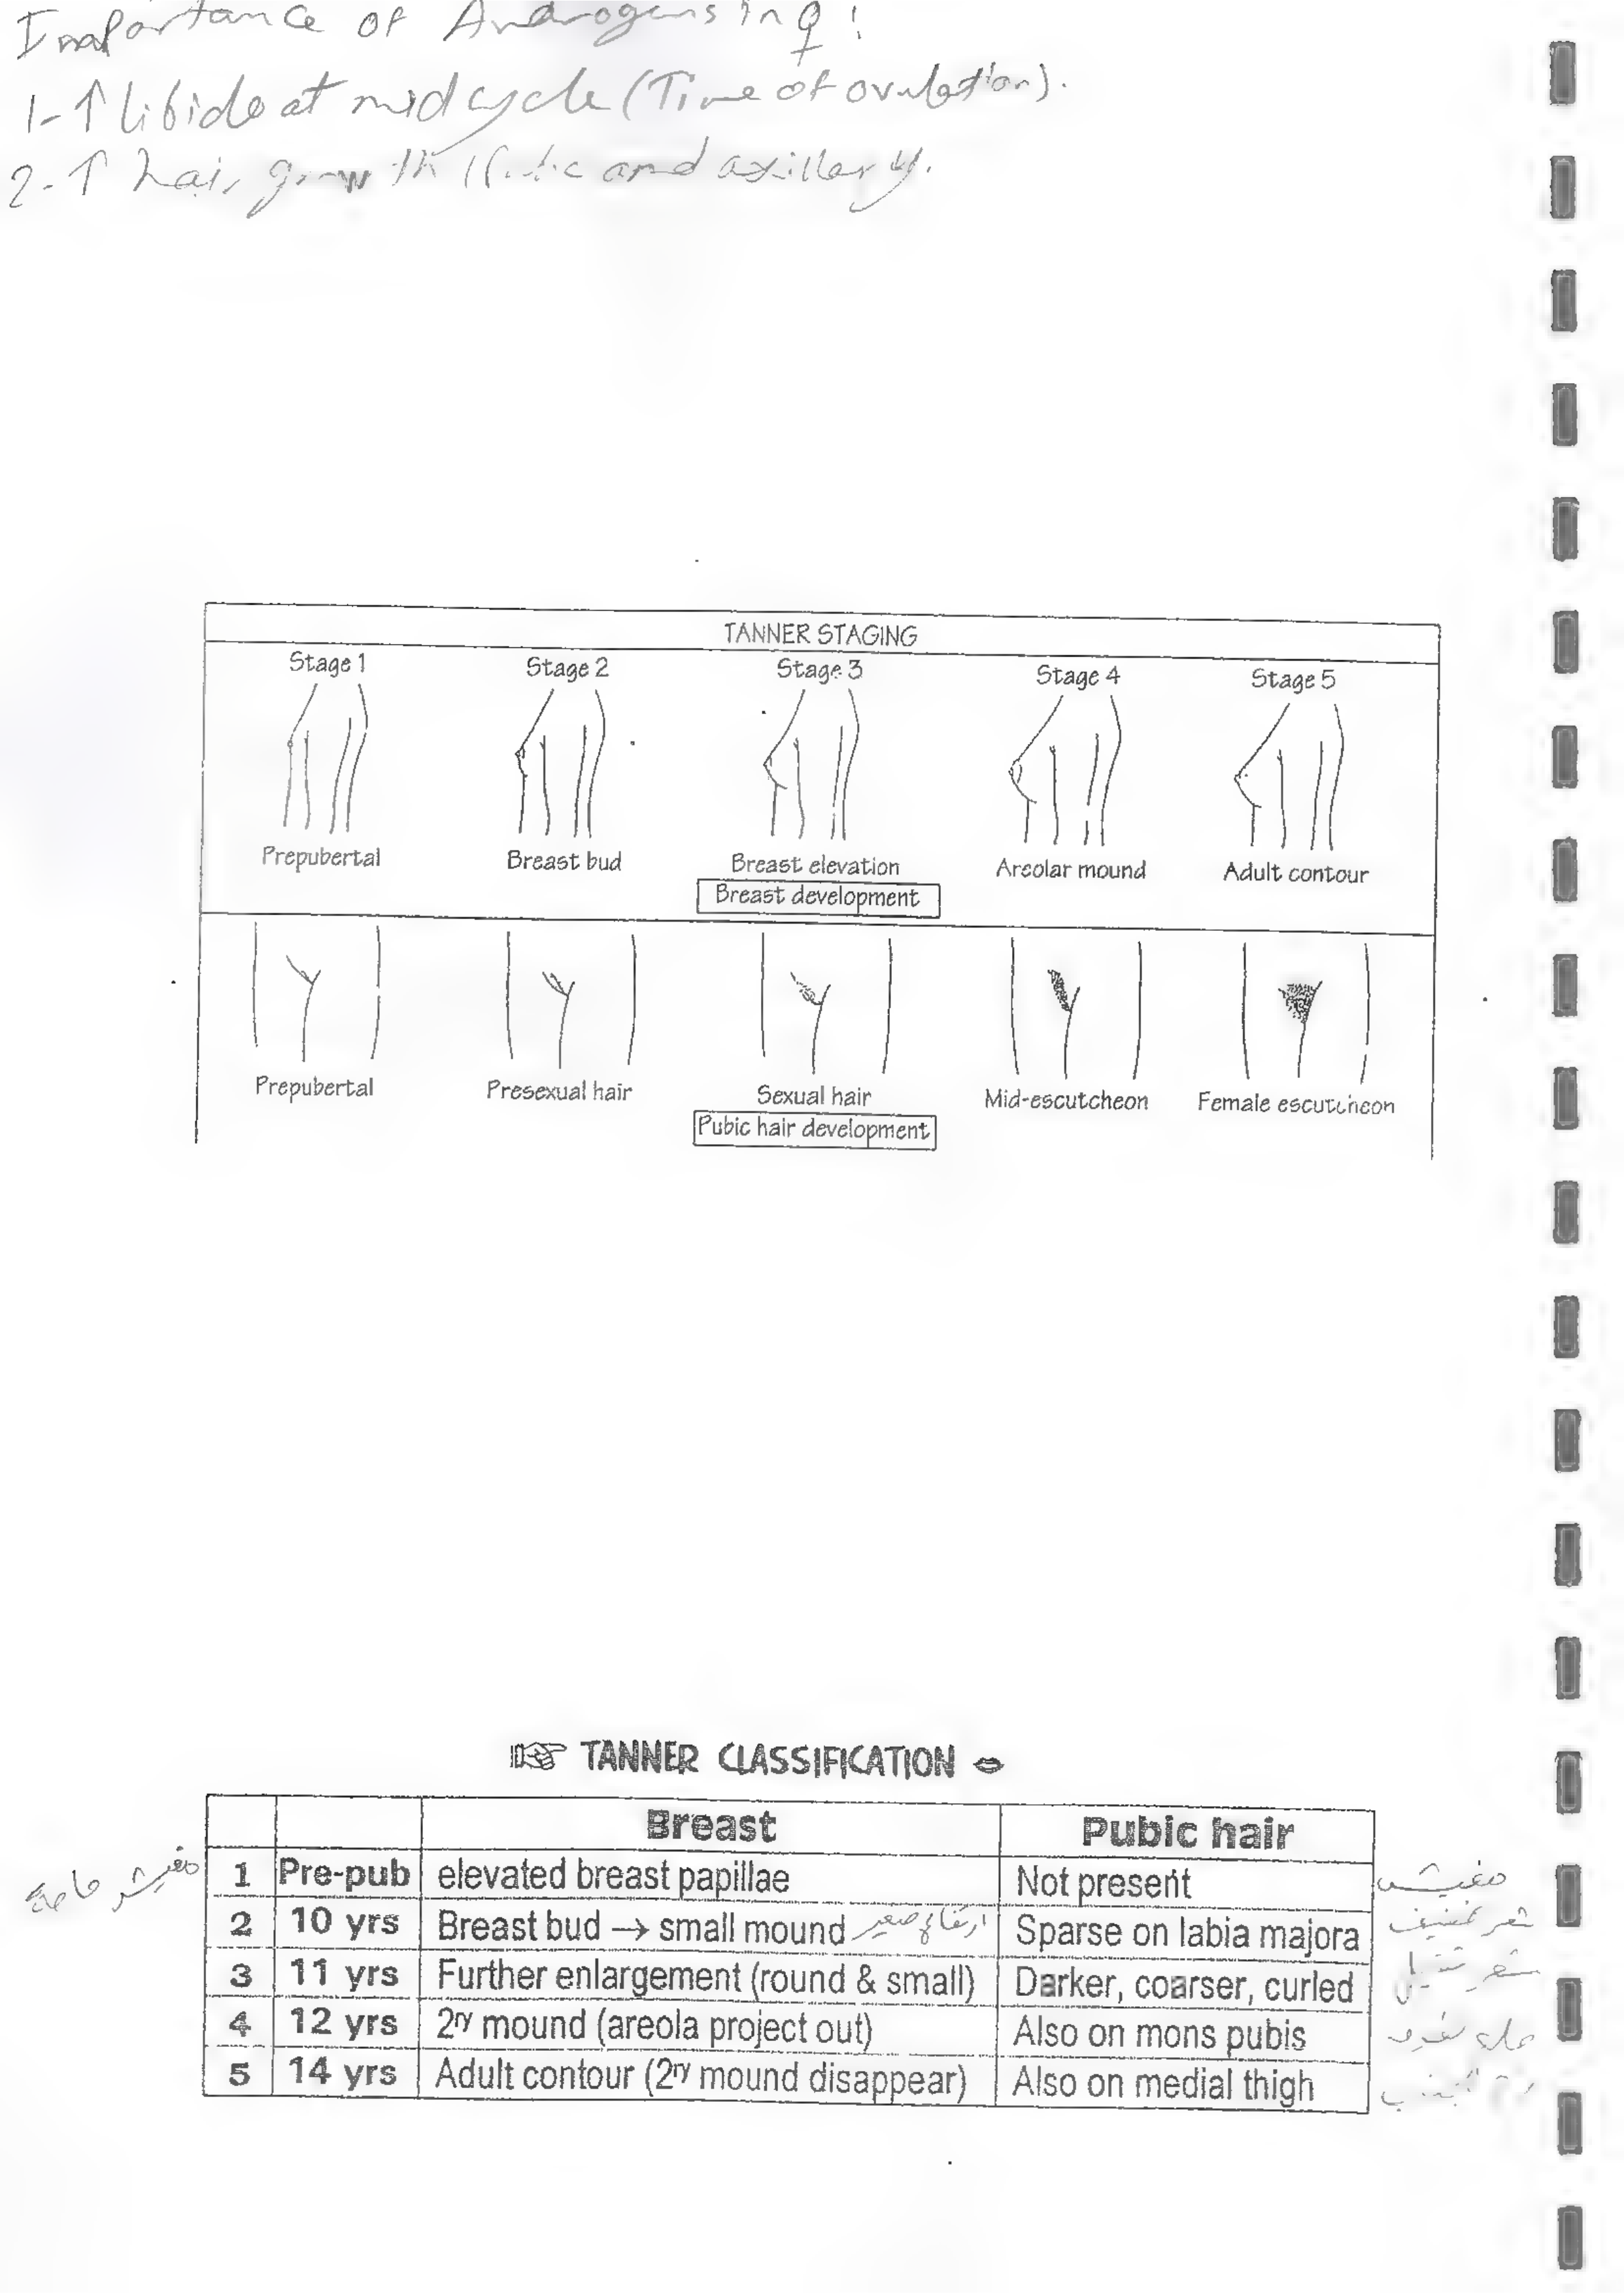 Importance of Androgens in ♀ :
1- ↑ libido at mid cycle (Time of ovulation).
2- ↑ hair growth and axillary.
TANNER STAGING
Stage 1 Stage 2 Stage 3 Stage 4 Stage 5
Prepubertal Breast bud Breast elevation Areolar mound Adult contour
Breast development
Prepubertal Presexual hair Sexual hair Mid-escutcheon Female escutcheon
Pubic hair development
TANNER CLASSIFICATION
Breast Pubic hair
1 Pre-pub elevated breast papillae Not present مفيش
2 10 yrs Breast bud → small mound ارتفاع صغير Sparse on labia majora شعر خفيف
3 11 yrs Further enlargement (round & small) Darker, coarser, curled شعر
4 12 yrs 2ry mound (areola project out) Also on mons pubis
5 14 yrs Adult contour (2ry mound disappear) Also on medial thigh
مفيش حاجة